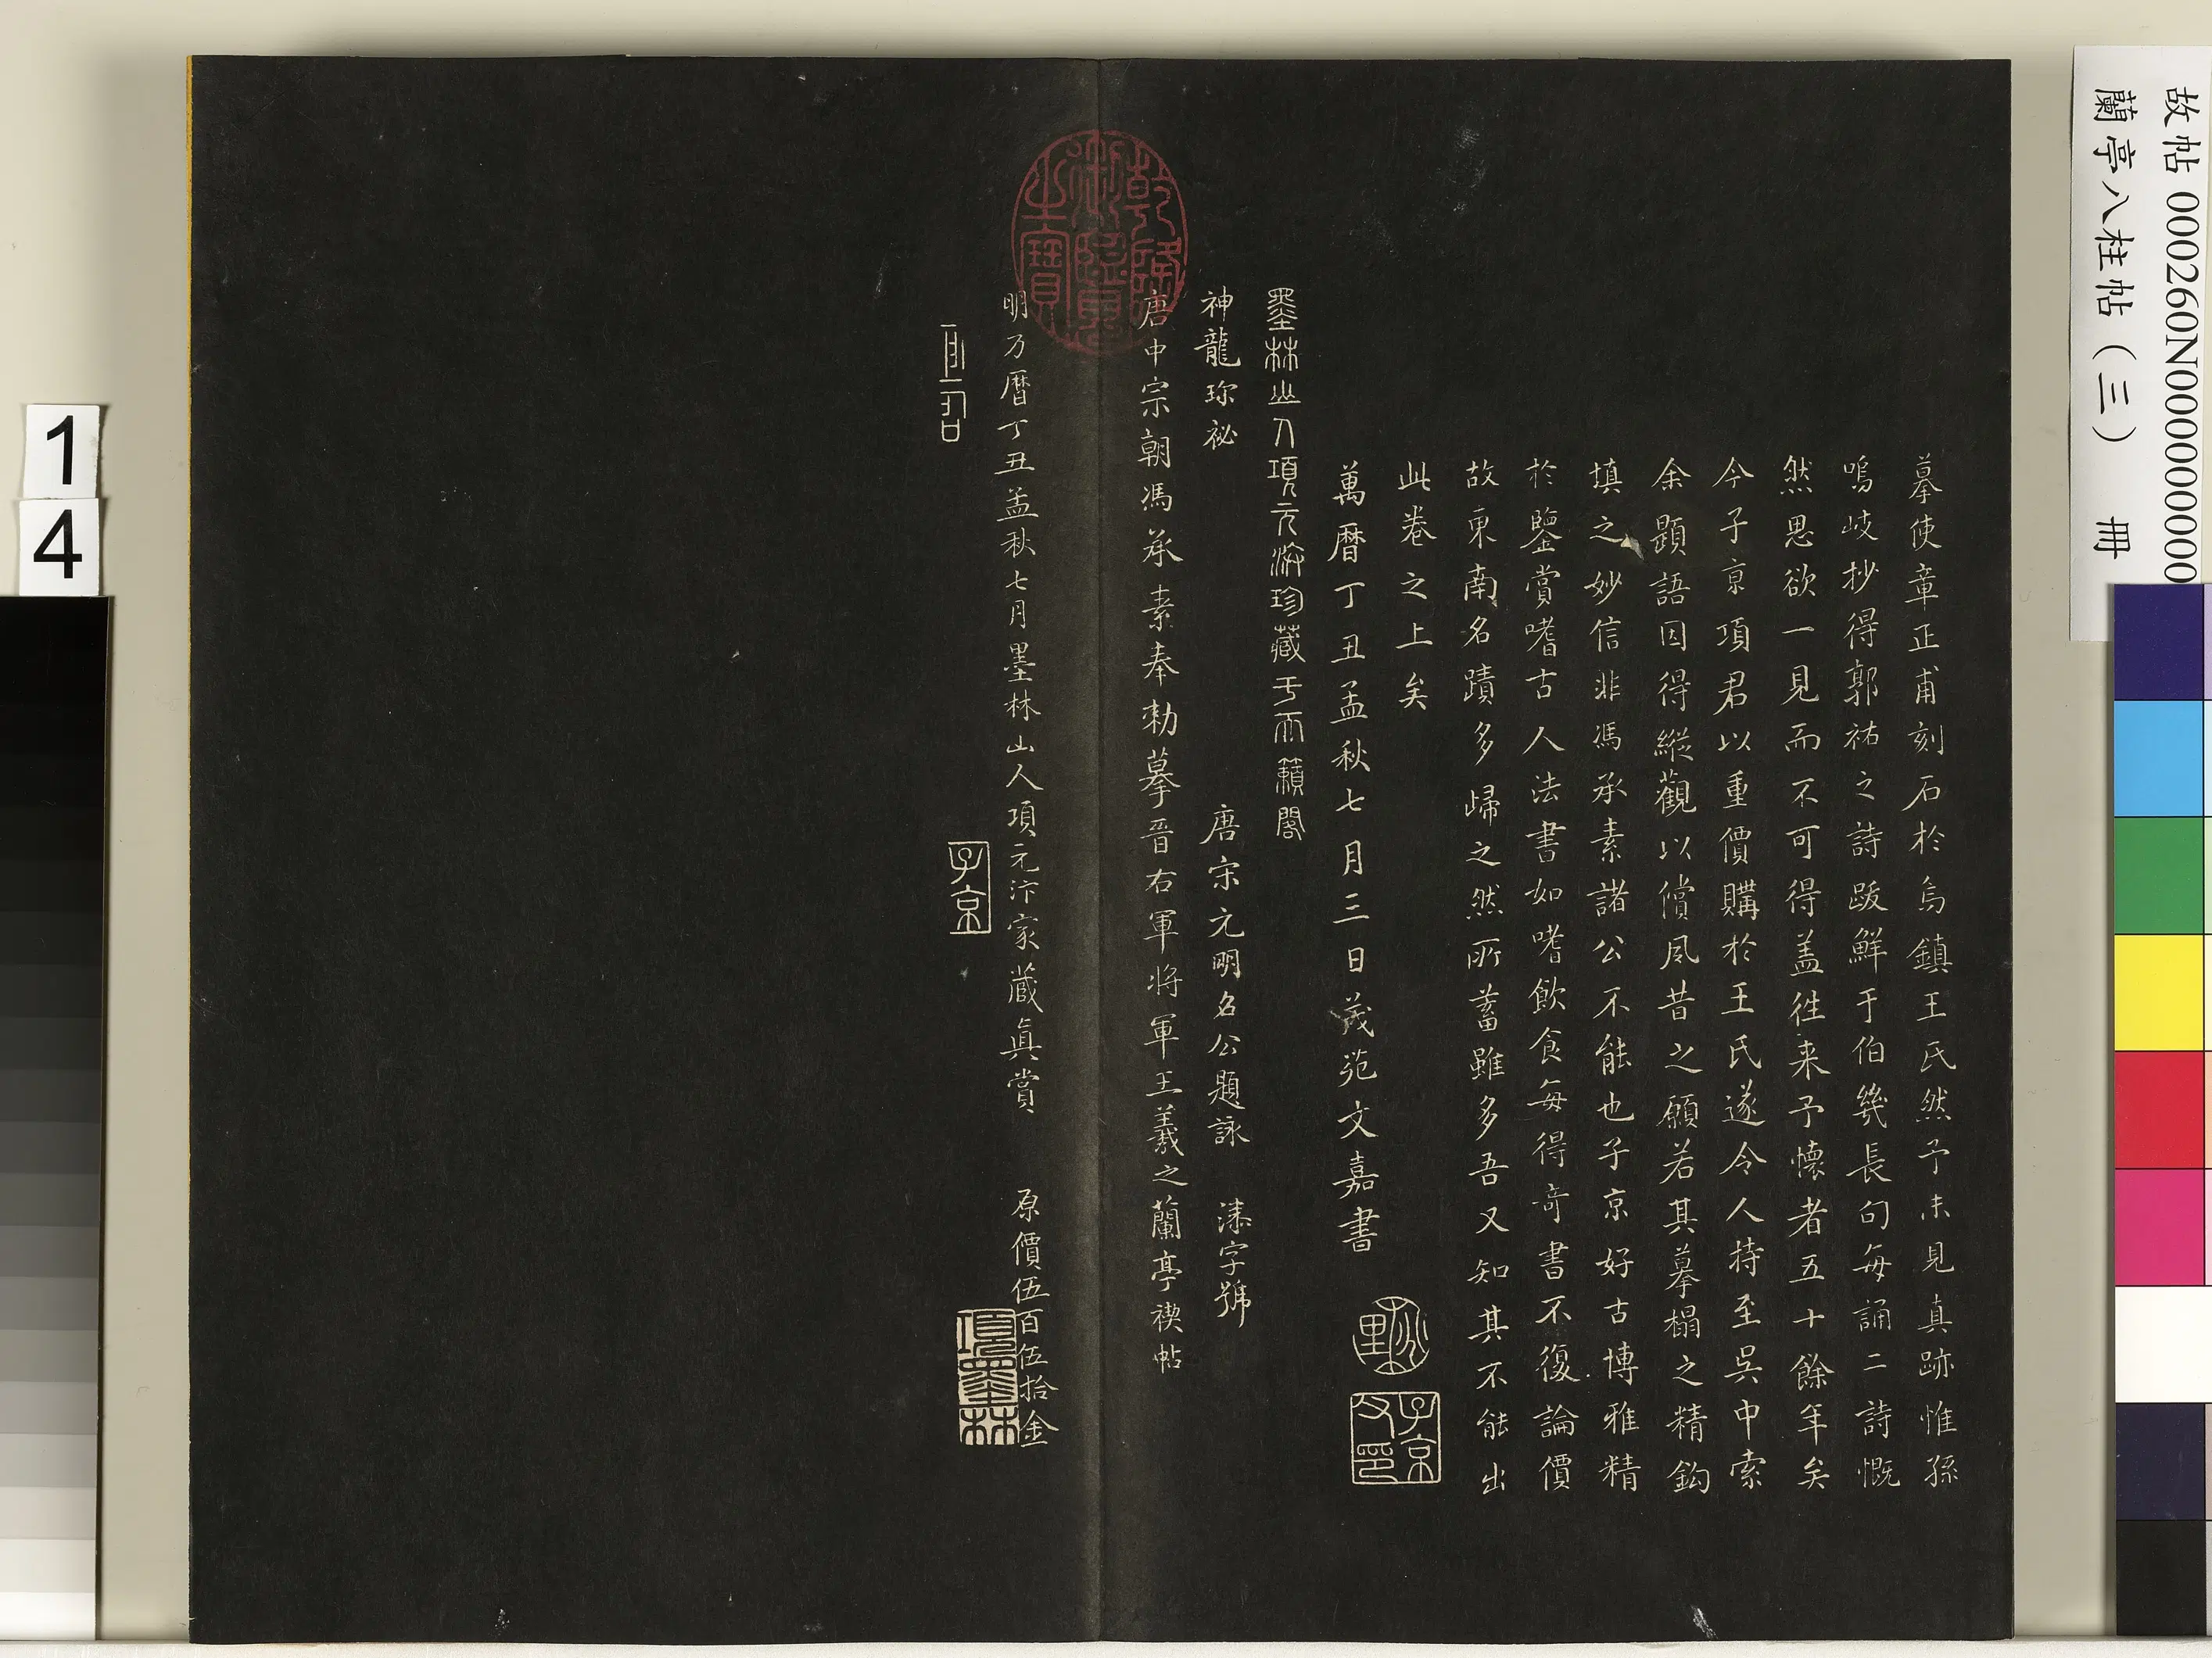 故帖 000260N000000000
蘭亭八柱帖（三） 冊
摹使章正甫刻石於烏鎮王氏然予未見真跡惟孫
鳴岐抄得郭祐之詩跋鮮于伯幾長句每誦二詩慨
然思欲一見而不可得盖往来予懐者五十餘年矣
今子京項君以重價購於王氏遂令人持至吳中索
余題語因得縱觀以償夙昔之願若其摹榻之精鈎
填之妙信非馮承素諸公不能也子京好古博雅精
於鑒賞嗜古人法書如嗜飲食每得奇書不復論價
故東南名蹟多歸之然所蓄雖多吾又知其不能出
此卷之上矣
萬曆丁丑孟秋七月三日茂苑文嘉書
子京父印
墨林山人項元汴珍藏于天籟閣
神龍珎祕 唐宋元明名公題詠 漆字號
唐中宗朝馮承素奉勅摹晉右軍将軍王羲之蘭亭禊帖
乾隆御覽之寶
明万曆丁丑孟秋七月墨林山人項元汴家藏真賞 原價伍百伍拾金
子京
項墨林
1
4